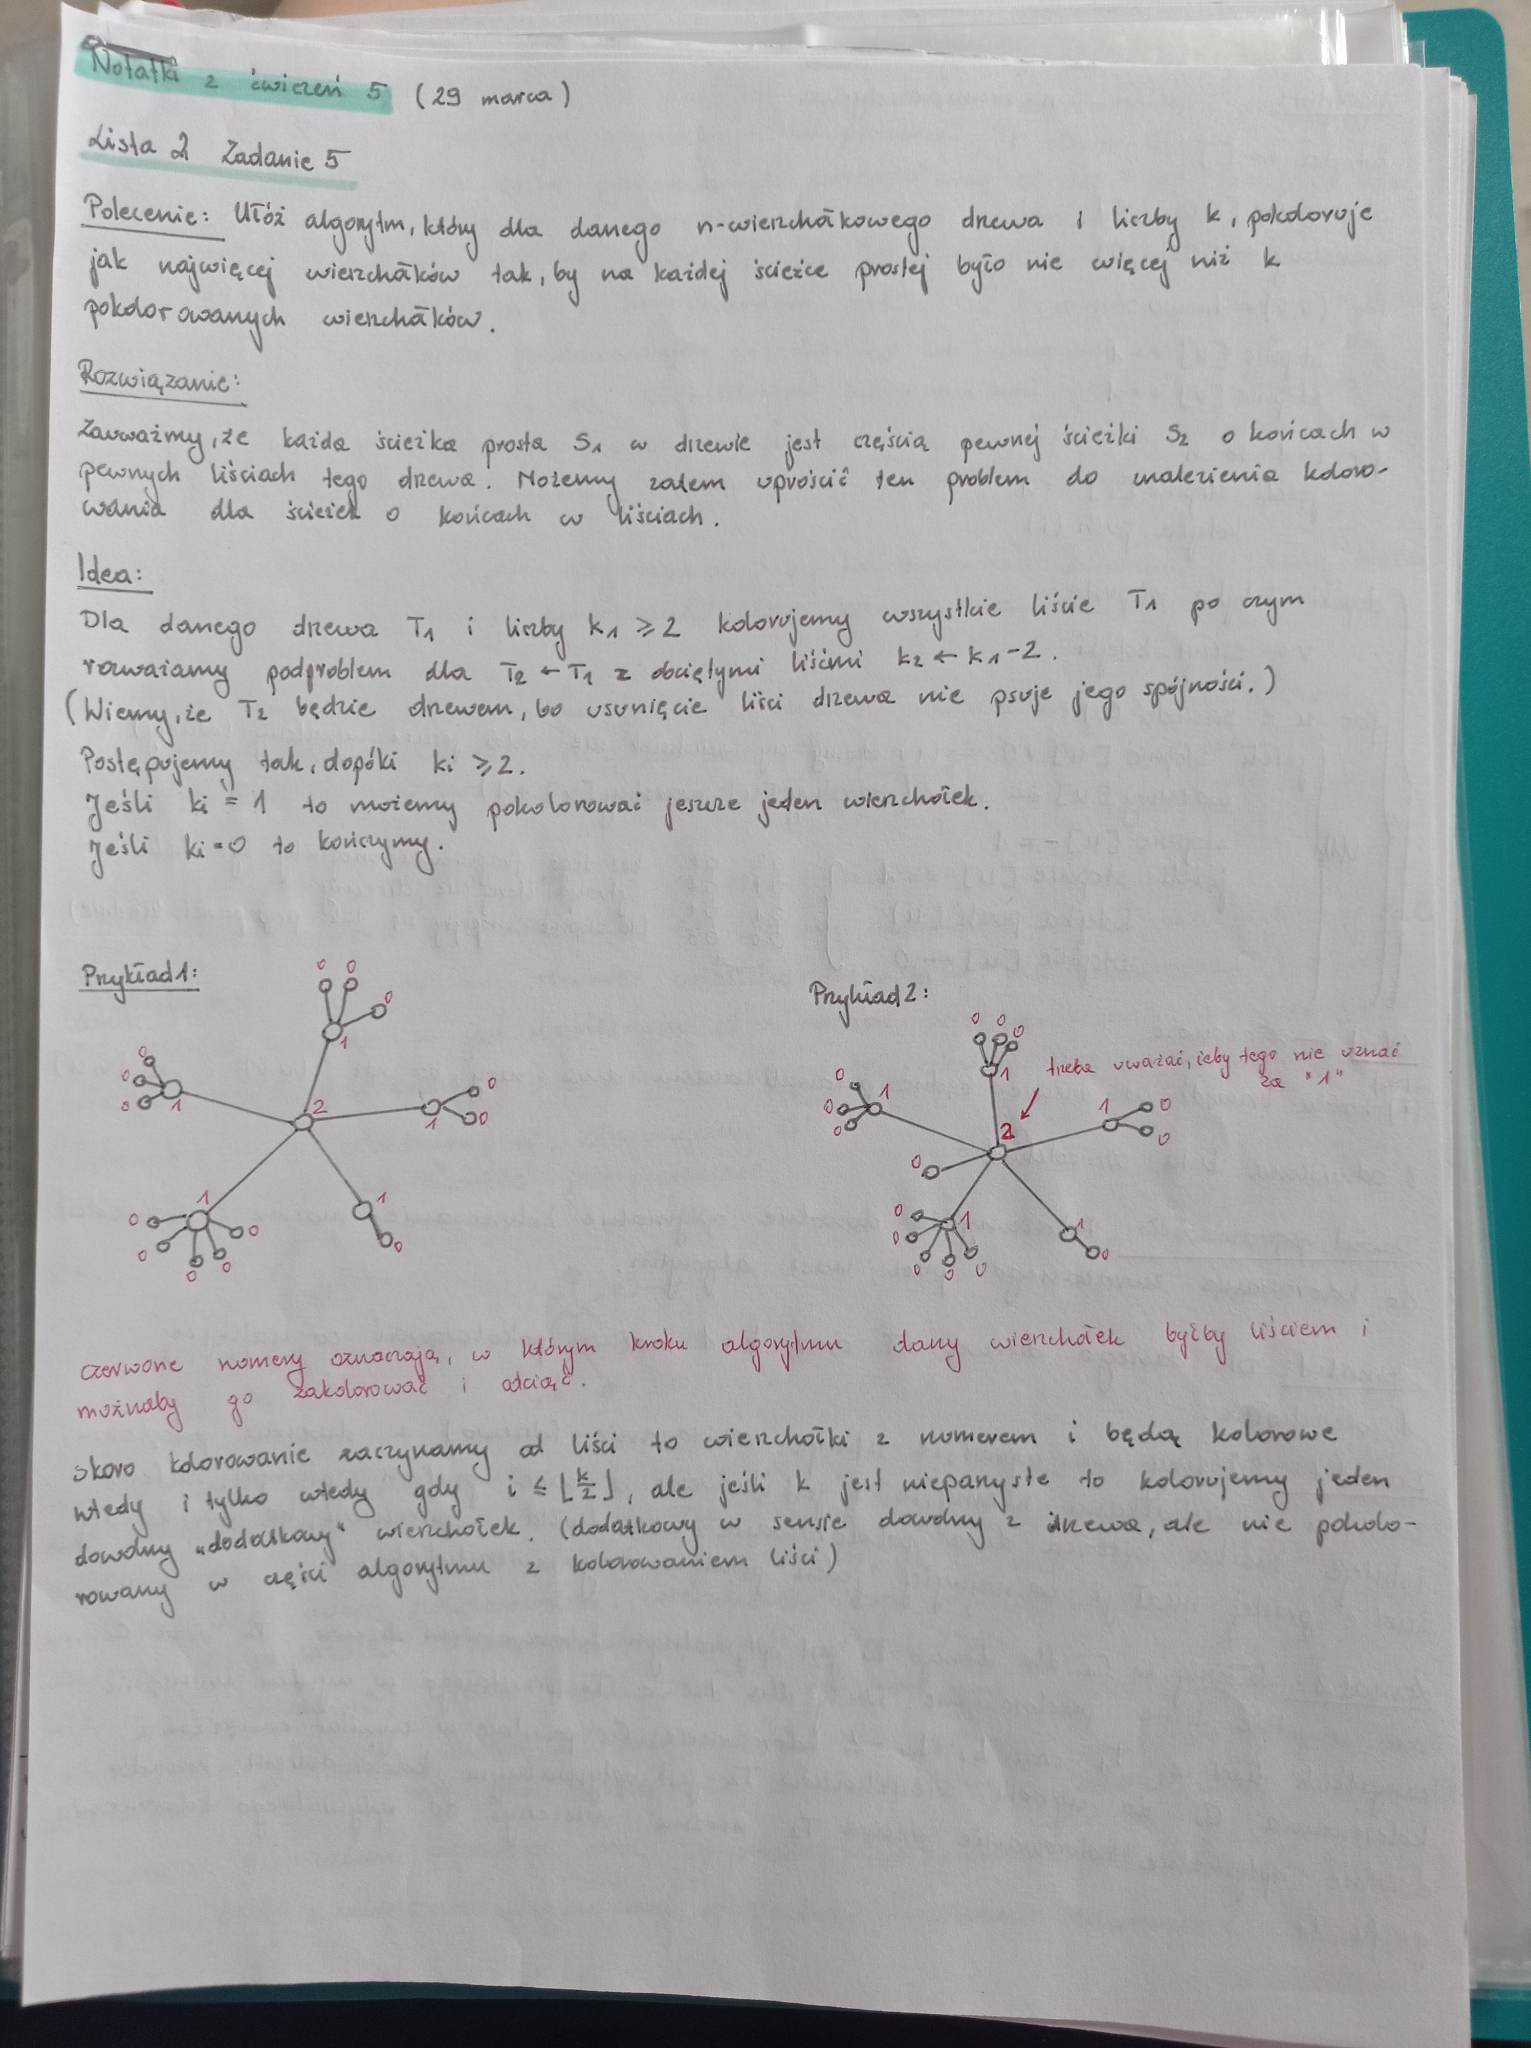 Notatki z ćwiczeń 5 (29 marca)
Lista 2 Zadanie 5
Polecenie: Ułóż algorytm, który dla danego n-wierzchołkowego drzewa i liczby k, pokoloruje
jak najwięcej wierzchołków tak, by na każdej ścieżce prostej było nie więcej niż k
pokolorowanych wierzchołków.
Rozwiązanie:
Zauważmy, że każda ścieżka prosta S1 w drzewie jest częścią pewnej ścieżki S2 o końcach w
pewnych liściach tego drzewa. Możemy zatem uprościć ten problem do znalezienia koloro-
wania dla ścieżek o końcach w liściach.
Idea:
Dla danego drzewa T1 i liczby k1 ≥ 2 kolorujemy wszystkie liście T1 po czym
rozważamy podproblem dla T2 ← T1 z obciętymi liśćmi k2 ← k1-2.
(Wiemy, że T2 będzie drzewem, bo usunięcie liści drzewa nie psuje jego spójności.)
Postępujemy tak, dopóki ki ≥ 2.
Jeśli ki = 1 to możemy pokolorować jeszcze jeden wierzchołek.
Jeśli ki = 0 to kończymy.
Przykład 1:
0 0 0 1
0 0 0 1
2
0 0 1
1 0 0 0 0 0
1 0
Przykład 2:
0 0 0 1
trzeba uważać, żeby tego nie uznać
za "1"
0 0 0 1
2
1 0 0
0
0 0 0 0 0 1
1 0
czerwone numery oznaczają, w którym kroku algorytmu dany wierzchołek byłby liściem i
możnaby go zakolorować i odciąć.
Skoro kolorowanie zaczynamy od liści to wierzchołki z numerem i będą kolorowe
wtedy i tylko wtedy gdy i ≤ ⌊k/2⌋, ale jeśli k jest nieparzyste to kolorujemy jeden
dowolny „dodatkowy" wierzchołek. (dodatkowy w sensie dowolny z drzewa, ale nie pokolo-
rowany w części algorytmu z kolorowaniem liści)